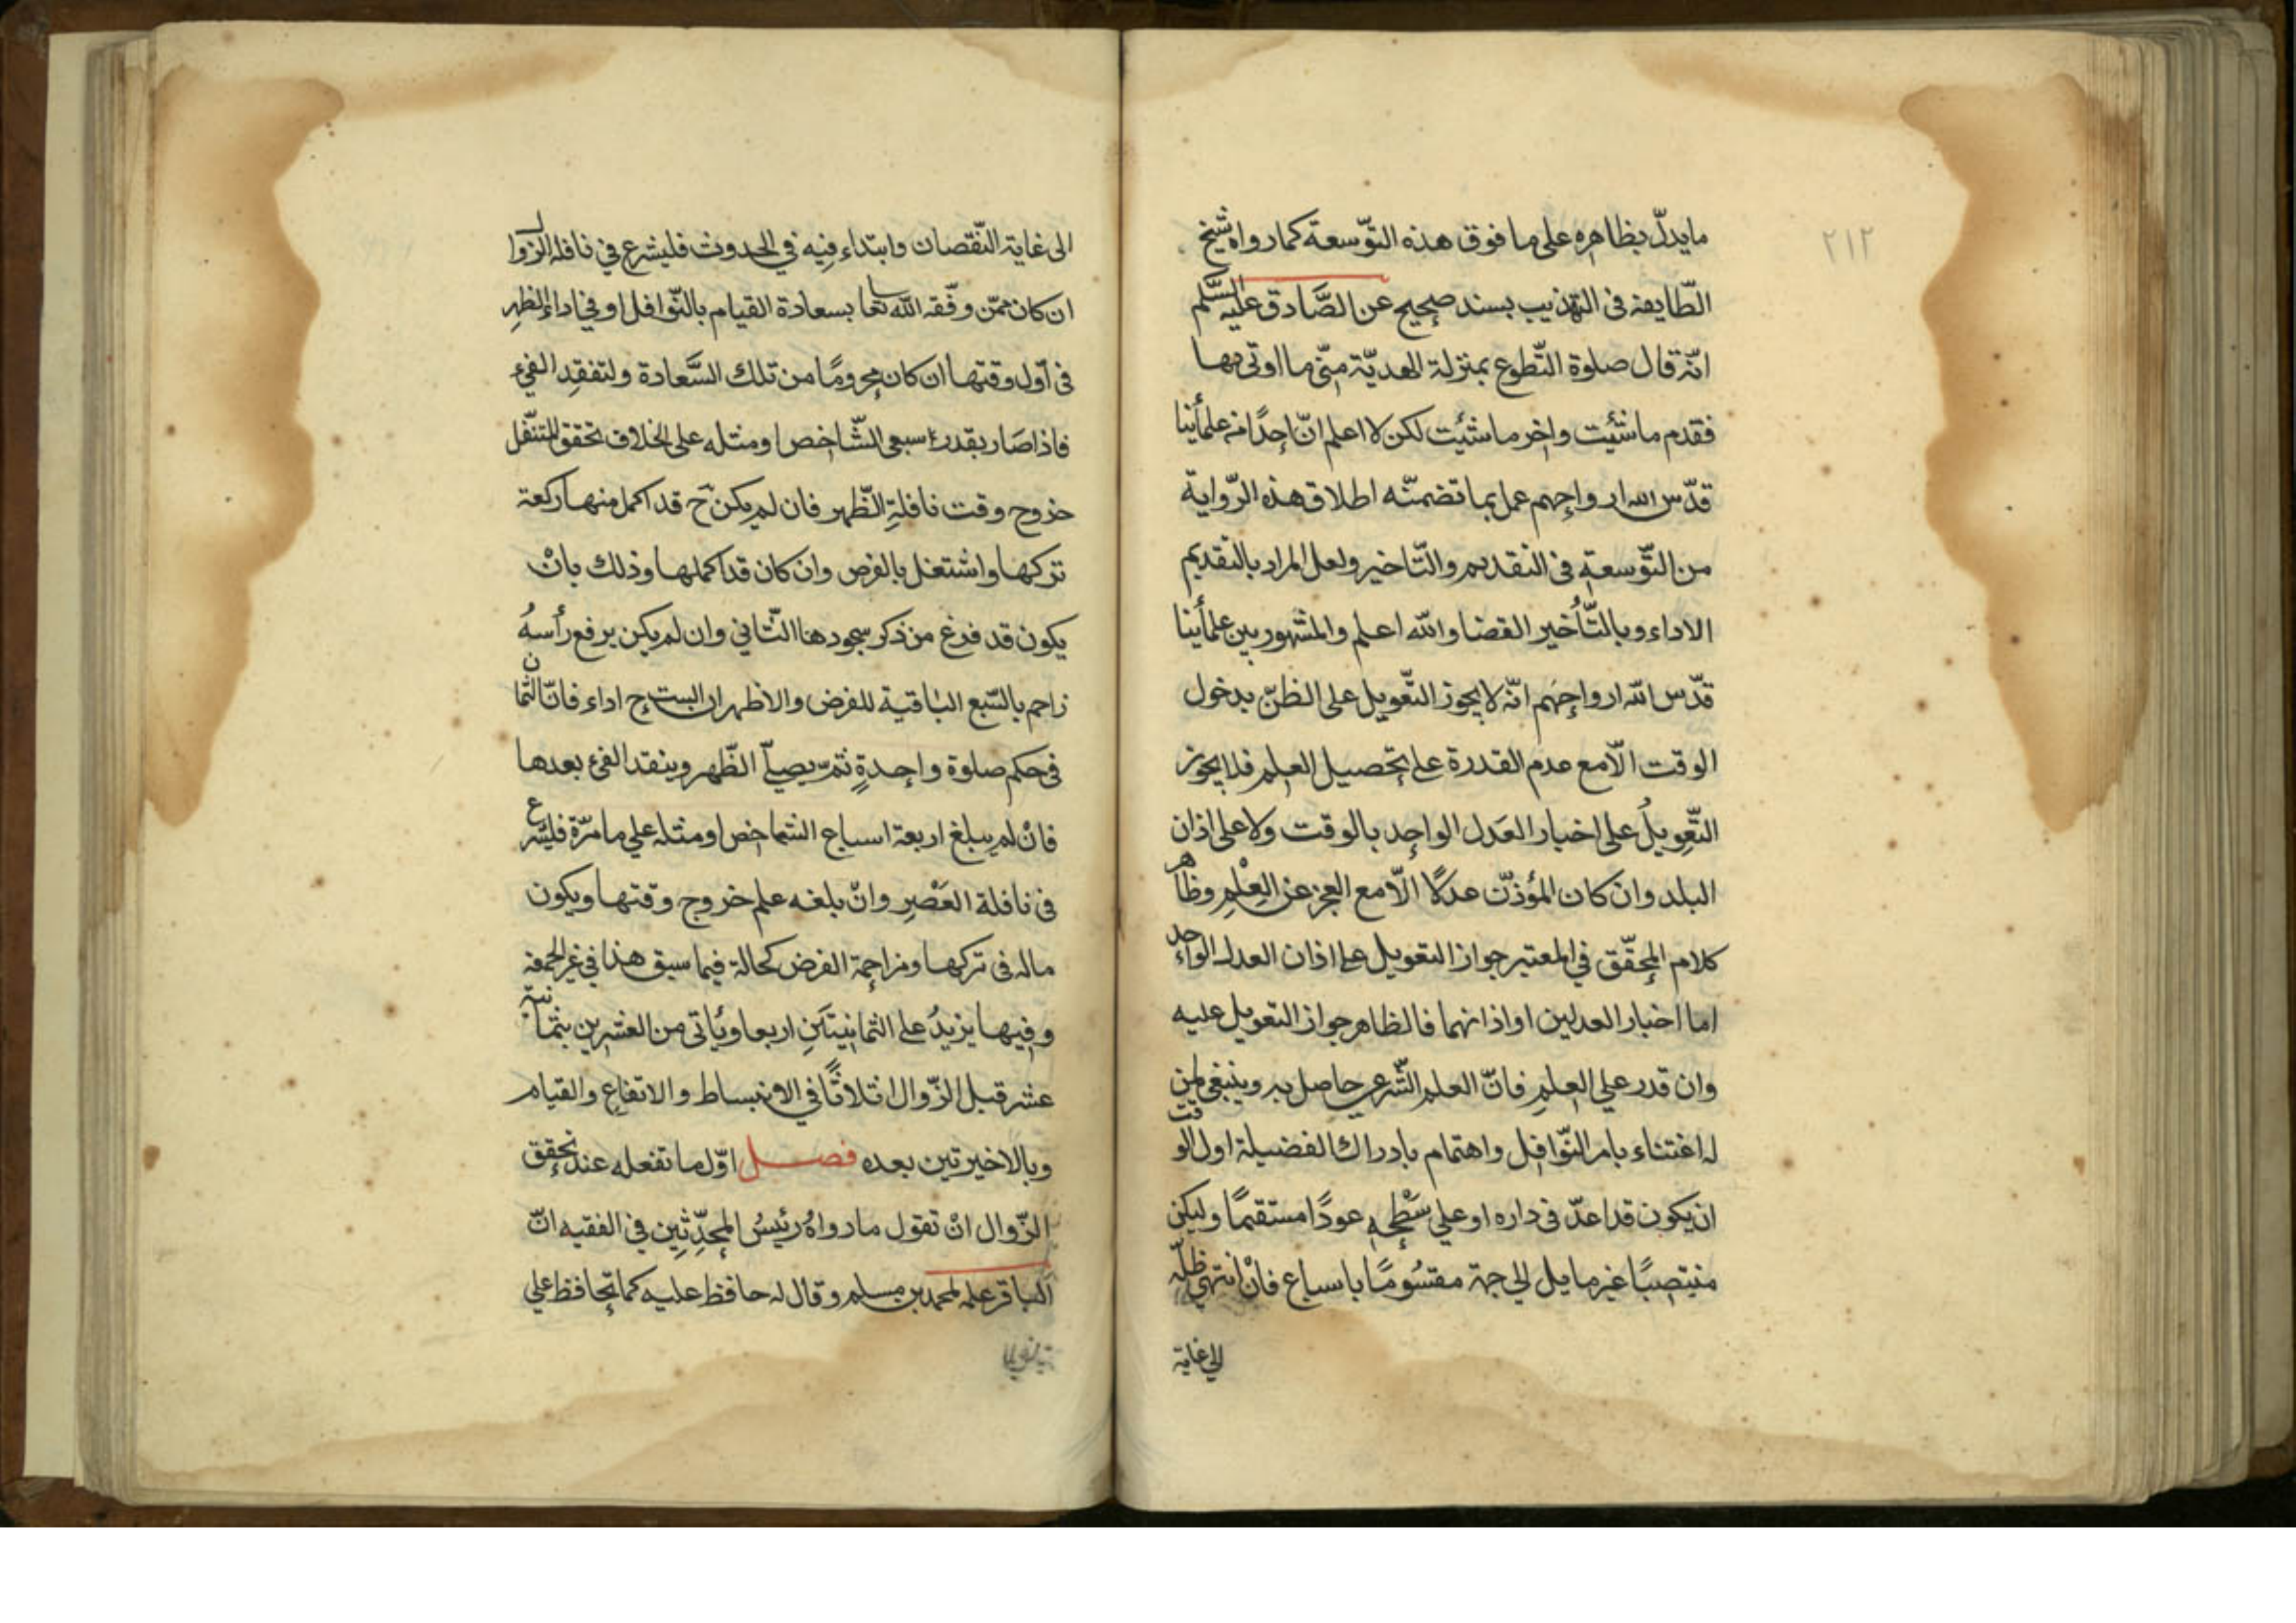 ٢١٢
مايدلّ بظاهره على ما فوق هذه التّوسعة كما رواه شيخ
الطّايفة فى التهذيب بسند صحيح عن الصَّادق عليه السَّلم
انّه قال صلوة التّطوع بمنزلة الهديّة متى ما اوتى بها
فقدم ما شئت واخر ما شئت لكن لا اعلم انّ احدًا من علمأينا
قدّس الله ارواحهم عمل بما تضمنّه اطلاق هذه الرّواية
من التّوسعة فى التقديم والتّاخير ولعل المراد بالتقديم
الاداء وبالتّأخير القضا والله اعلم والمشهور بين علمأينا
قدّس الله ارواحهم انّه لا يجوز التّعويل على الظنّ بدخول
الوقت الّا مع عدم القدرة على تحصيل العلم فلا يجوز
التّعويل على اخبار العَدل الواحد بالوقت ولا على اذان
البلد وان كان المؤذّن عدلًا الّا مع العجز عن العِلْمِ وظاهر
كلام المحقّق في المعتبر جواز التعويل على اذان العدل الواحد
اما اخبار العدلين او اذانهما فالظاهر جواز التعويل عليه
وان قدر على العلمِ فانّ العلم الشّرعى حاصل به وينبغى لمن
له اعتناء بامر النّوافل واهتمام بادراك الفضيلة اول الوقت
ان يكون قد اعدّ فى داره او على سَطْحِه عودًا مستقيمًا وليكن
منتصبًا غير مايل الى جهة مقسُومًا باسباع فانْ انتهى ظلّه
الى غاية
الى غاية النّقصان وابتداء فيه في الحدوث فليشرع في نافلة الزّوال
ان كان ممّن وفّقه الله تعا بسعادة القيام بالنّوافل او في اداء الظهر
فى اوّل وقتها ان كان محرومًا من تلك السَّعادة ولتفقد الفيء
فاذا صَار بقدر سبعى الشّاخص او مثله على الخلاف تحقق المتنفّل
خروج وقت نافلةِ الظّهر فان لم يكن ح قد اكمل منها ركعة
تركها واشتغل بالفرض وان كان قد اكملها وذلك بانْ
يكون قد فرغ من ذكر سجودها الثّاني وان لم يكن يرفع رأسهُ
زاحم بالسّبع الباقية للفرض والاظهر ان الست ح اداء فانّ الثمان
فى حكم صلوة واحدةٍ ثم يصلّى الظّهر ويتفقد الفيء بعدها
فانْ لم يبلغ اربعة اسباع الشاخص او مثله علي ما مرّة فليشرع
فى نافلة العَصْرِ وانْ بلغه علم خروج وقتها ويكون
ماله فى تركها ومزاحمة الفرض كحالة فيما سبق هذا في غير الجمعة
وفيها يزيدُ على الثمانيتَينِ اربعا ويُاتى من العشرين بثمانية
عشر قبل الزّوال اثلاثًا في الانبساط والارتفاع والقيام
وبالاخيرتين بعده فصل اوّل ما تفعله عند تحقق
الزّوال انْ تقول ما رواهُ رئيسُ المحدِّثِين في الفقيه انّ
الباقر علم لمحمد بن مسلم وقال له حافظ عليه كما تحافظ على